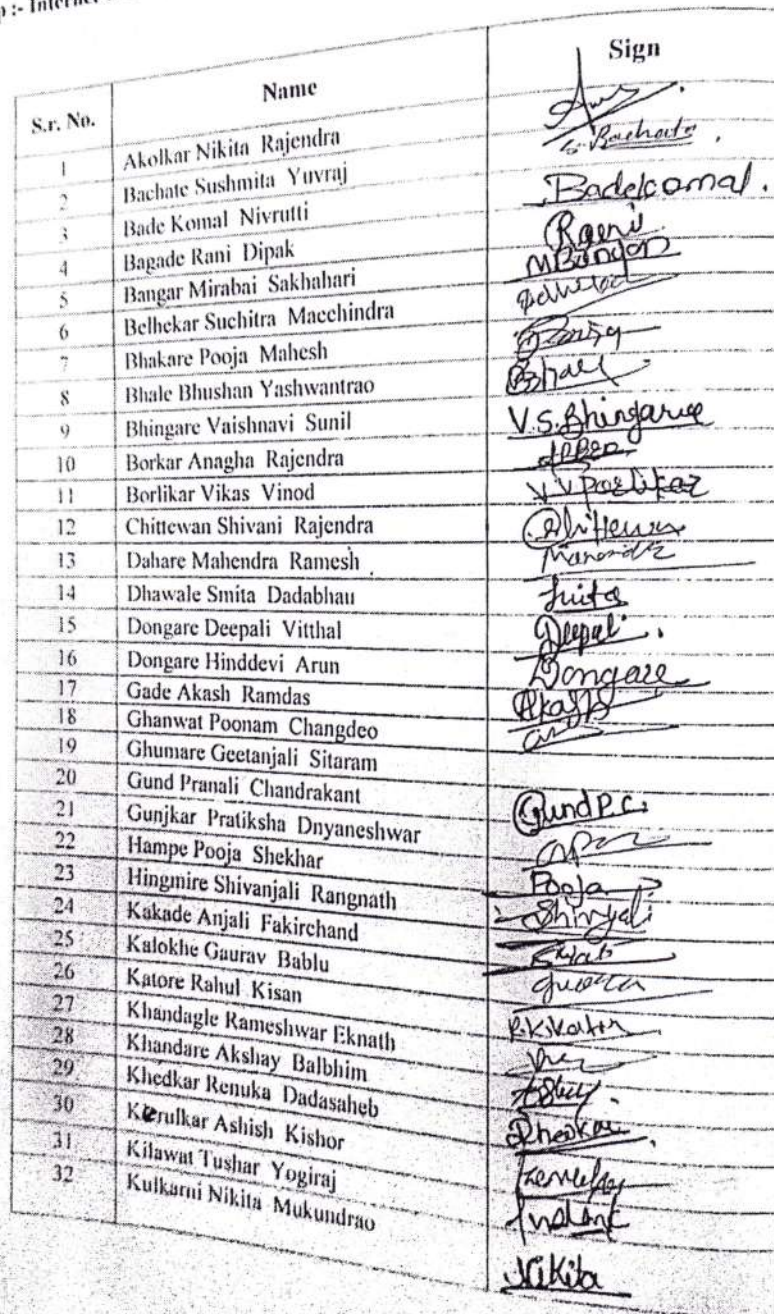 p :- Intern
S.r. No. Name Sign
1 Akolkar Nikita Rajendra
2 Bachate Sushmita Yuvraj S. Bachate
3 Bade Komal Nivrutti Badekomal.
4 Bagade Rani Dipak Rani
5 Bangar Mirabai Sakhahari MBangar
6 Belhekar Suchitra Macchindra
7 Bhakare Pooja Mahesh
8 Bhale Bhushan Yashwantrao Bbhale
9 Bhingare Vaishnavi Sunil V.S.Bhingare
10 Borkar Anagha Rajendra
11 Borlikar Vikas Vinod V V Borlikar
12 Chittewan Shivani Rajendra
13 Dahare Mahendra Ramesh
14 Dhawale Smita Dadabhau Smita
15 Dongare Deepali Vitthal Deepali.
16 Dongare Hinddevi Arun Dongare
17 Gade Akash Ramdas Akash
18 Ghanwat Poonam Changdeo
19 Ghumare Geetanjali Sitaram
20 Gund Pranali Chandrakant Gund P.C.
21 Gunjkar Pratiksha Dnyaneshwar
22 Hampe Pooja Shekhar Pooja
23 Hingmire Shivanjali Rangnath
24 Kakade Anjali Fakirchand
25 Kalokhe Gaurav Bablu
26 Katore Rahul Kisan R.K.Katore
27 Khandagle Rameshwar Eknath
28 Khandare Akshay Balbhim
29 Khedkar Renuka Dadasaheb
30 Kerulkar Ashish Kishor
31 Kilawat Tushar Yogiraj
32 Kulkarni Nikita Mukundrao Nikita